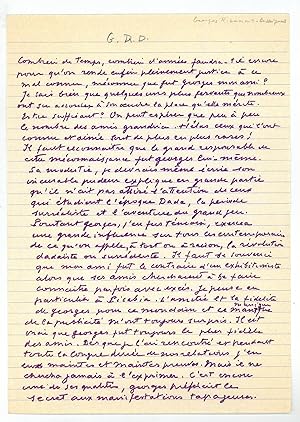 Georges R.
G. R. D.
Combien de temps, combien d'années faudra-t-il encore
pour qu'on rende enfin pleinement justice à ce
mal connu, méconnu que fut georges mon ami?
Je sais bien que quelques uns plus fervents que nombreux
ont su accorder à son œuvre la place qu'elle mérite.
Est-ce suffisant? On peut espérer que peu à peu
le nombre des amis grandira. Hélas ceux qui l'ont
connu et aimé sont de plus en plus rares!
Il faut reconnaître que le grand responsable de
cette méconnaissance fut georges lui-même.
Sa modestie, je devrais même écrire son
incurable pudeur explique en grande partie
qu'il n'ait pas attiré l'attention de ceux
qui étudient l'époque Dada, la période
surréaliste et l'aventure du grand jeu.
Pourtant georges, j'en fus témoin, exerça
une grande influence sur tous les contemporains
de ce qu'on appelle, à tort ou à raison, la révolution
dadaïste ou surréaliste. Il faut se souvenir
que mon ami fut le contraire d'un exhibitionniste
alors que ses amis cherchaient à se faire
connaître parfois avec excès. Je pense en
particulier à Picabia. L'amitié et la fidélité
de Georges pour ce mondain et ce
de la publicité m'ont toujours surpris. Il est
vrai que Georges fut toujours le plus fidèle
des amis. Dès que je l'ai rencontré et pendant
toute la longue durée de nos relations j'en
eus maintes et maintes preuves. Mais il ne
chercha jamais à l'exprimer. C'est encore
une de ses qualités, georges préférait le
secret aux manifestations tapageuses.